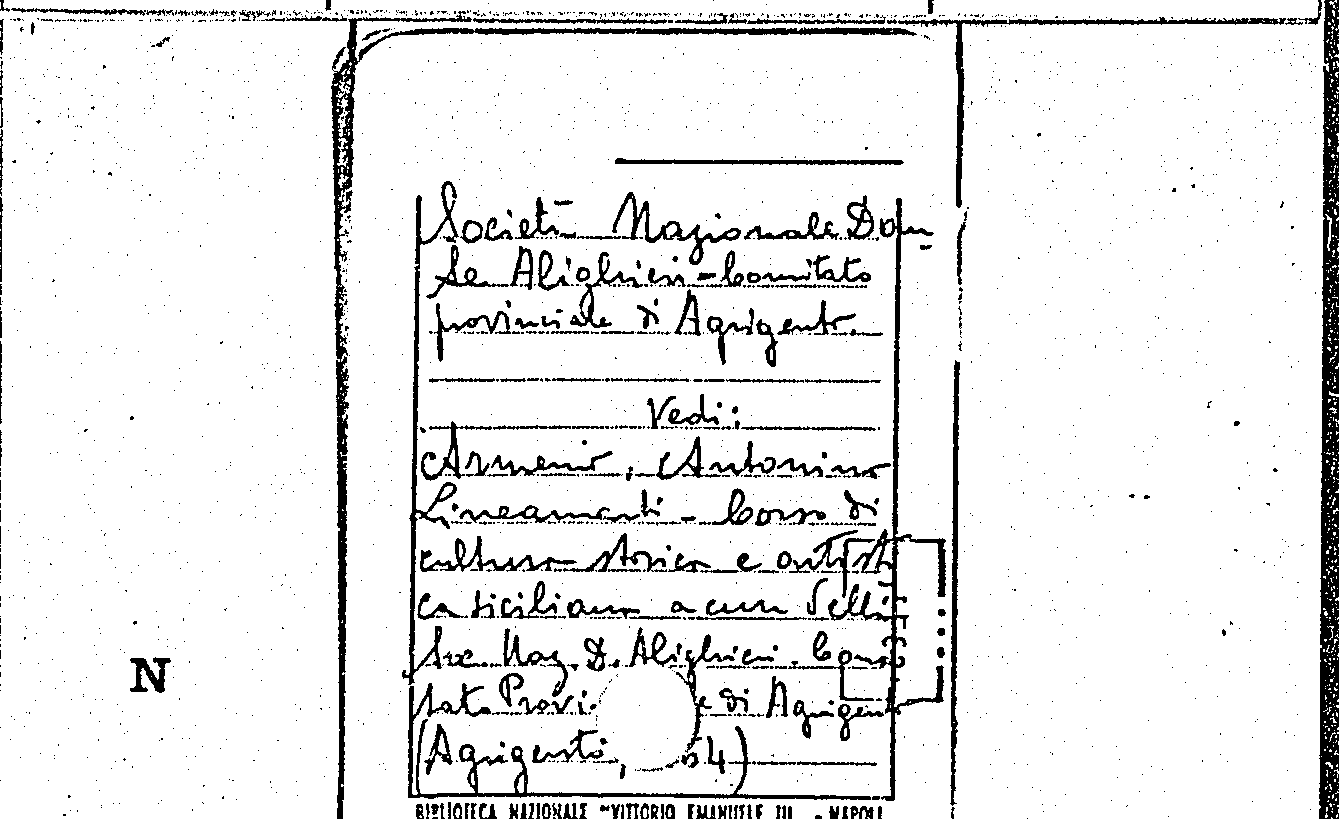 Società Nazionale Dan-
te Alighieri - Comitato
provinciale di Agrigento.
Vedi:
Armenio, Antonino
Lineamenti - Corso di
cultura storica e artisti
ca siciliana a cura della
Soc. Naz. D. Alighieri. Comi
tato Provi e di Agrigento
(Agrigento, 54)
N
BIBLIOTECA NAZIONALE "VITTORIO EMANUELE III - NAPOLI